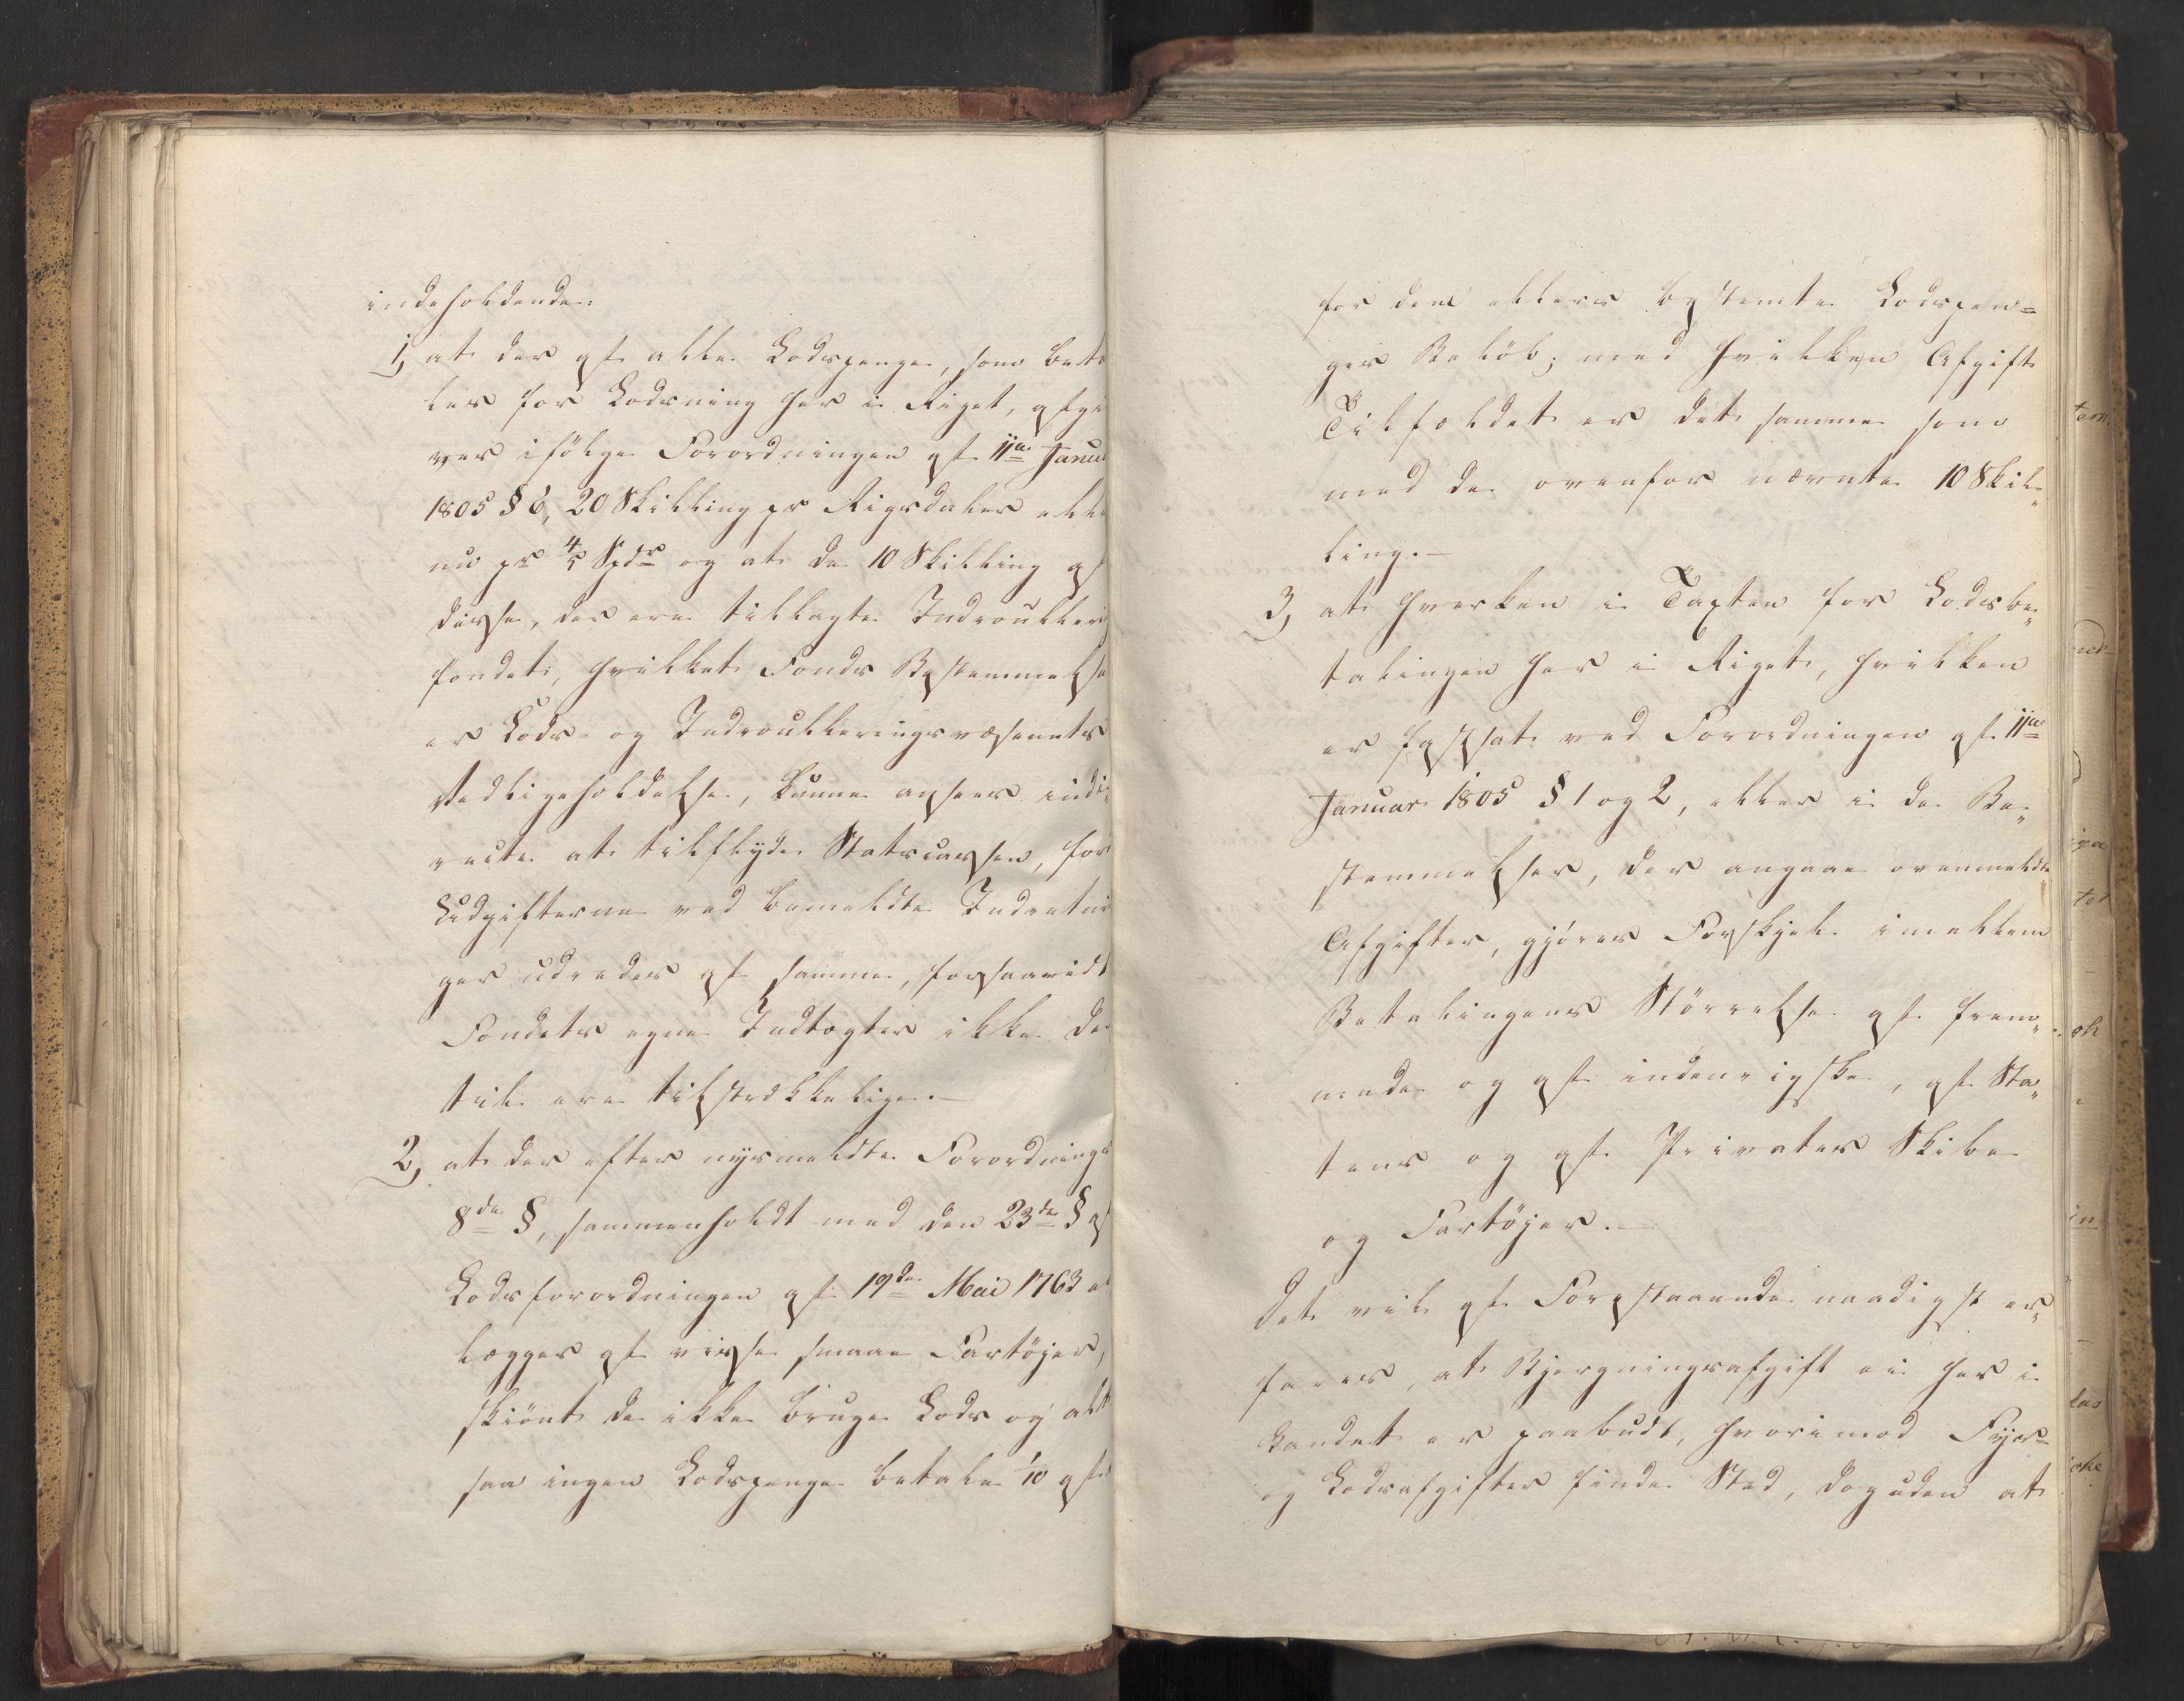 indeholdende.
1, at der af alle Lodspenge, som beta
les for Lodsning her i Riget, afgi
ves ifölge Forordningen af 11te Janua
1805 § 6, 20 Skilling pr Rigsdaler elle
nu pr 4/5 Spdr og at de 10 Skilling af
disse, der ere tillagte Indroulleri
fondet, hvilket Fonds Bestemmelse
er Lods- og Indroulleringsvæsenets
Vedligeholdelse, kunne ansees indi
recte at tilflyde Statscassen, for
Udgifterne ved bemeldte Indretni
ger udredes af samme, forsaavidt
Fondets egne Indtægter ikke der
til ere tilstrækkelige.—
2, at der efter nysmeldte Forordnings
8de §, sammenholdt med den 23de § af
Lodsforordningen af 19de Mai 1763 e
lægges af visse smaae Fartöjer,
skiönt de ikke bruge Lods og alt
saa ingen Lodspenge betale 1/10 af
for dem ellers bestemte Lodspen=
ges Belöb; med hvilken Afgift
Tilfældet er det samme som
med de ovenfor nævnte 10 Skil„
ling.—
3, at hverken i Taxten for Lodsbe„
talingen her i Riget, hvilken
er fastsat ved Forordningen af 11te
Januar 1805 § 1 og 2, eller i de Be„
stemmelser, der angaae ovenmeldte
Afgifter, gjöres Forskjel imellem
Betalingens Störrelse af frem„
mede og af indenrigske, af Sta„
tens og af Privates Skibe
og Fartöjer.—
Det vil af Foregstaaende naadigst er„
fares, at Bjergningsafgift ei her i
Landet er paabudt, hvorimod Fyr-
og Lodsafgifter finde Sted, dog uden at